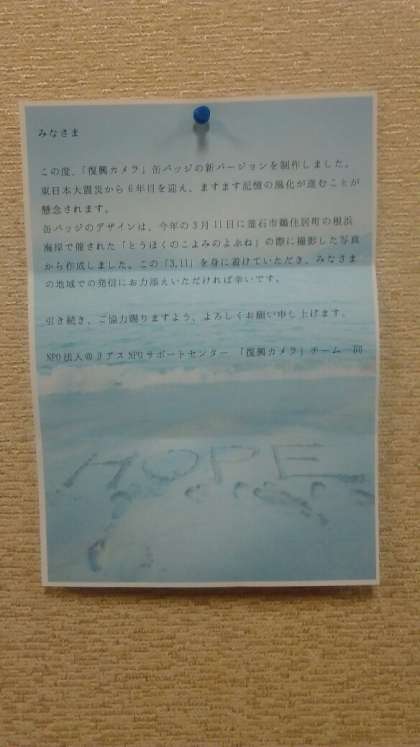 みなさま
この度、「復興カメラ」缶バッジの新バージョンを制作しました。
東日本大震災から6年目を迎え、ますます記憶の風化が進むことが
懸念されます。
缶バッジのデザインは、今年の3月11日に釜石市鵜住居町の根浜
海岸で催された「とうほくのこよみのよぶね」の際に撮影した写真
から作成しました。この「3.11」を身に着けていただき、みなさま
の地域での発信にお力添えいただければ幸いです。
引き続き、ご協力賜りますよう、よろしくお願い申し上げます。
NPO法人@リアスNPOサポートセンター 「復興カメラ」チーム 一同
HOPE